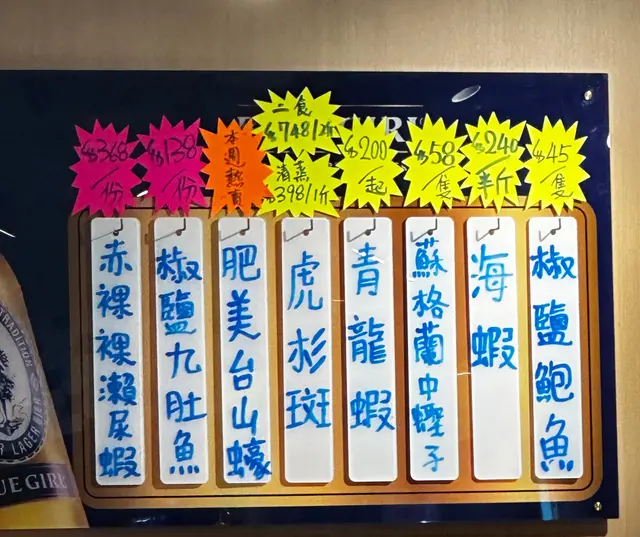 $368
/份
赤裸裸瀨尿蝦
$138
/份
椒鹽九肚魚
本週熱賣
肥美台山蠔
二食
$748/2斤
清蒸
$398/1斤
虎杉斑
$200
/起
青龍蝦
$58
/隻
蘇格蘭中蟶子
$240
/半斤
海蝦
$45
/隻
椒鹽鮑魚
TRADITION
LAGER BEER
UE GIRL